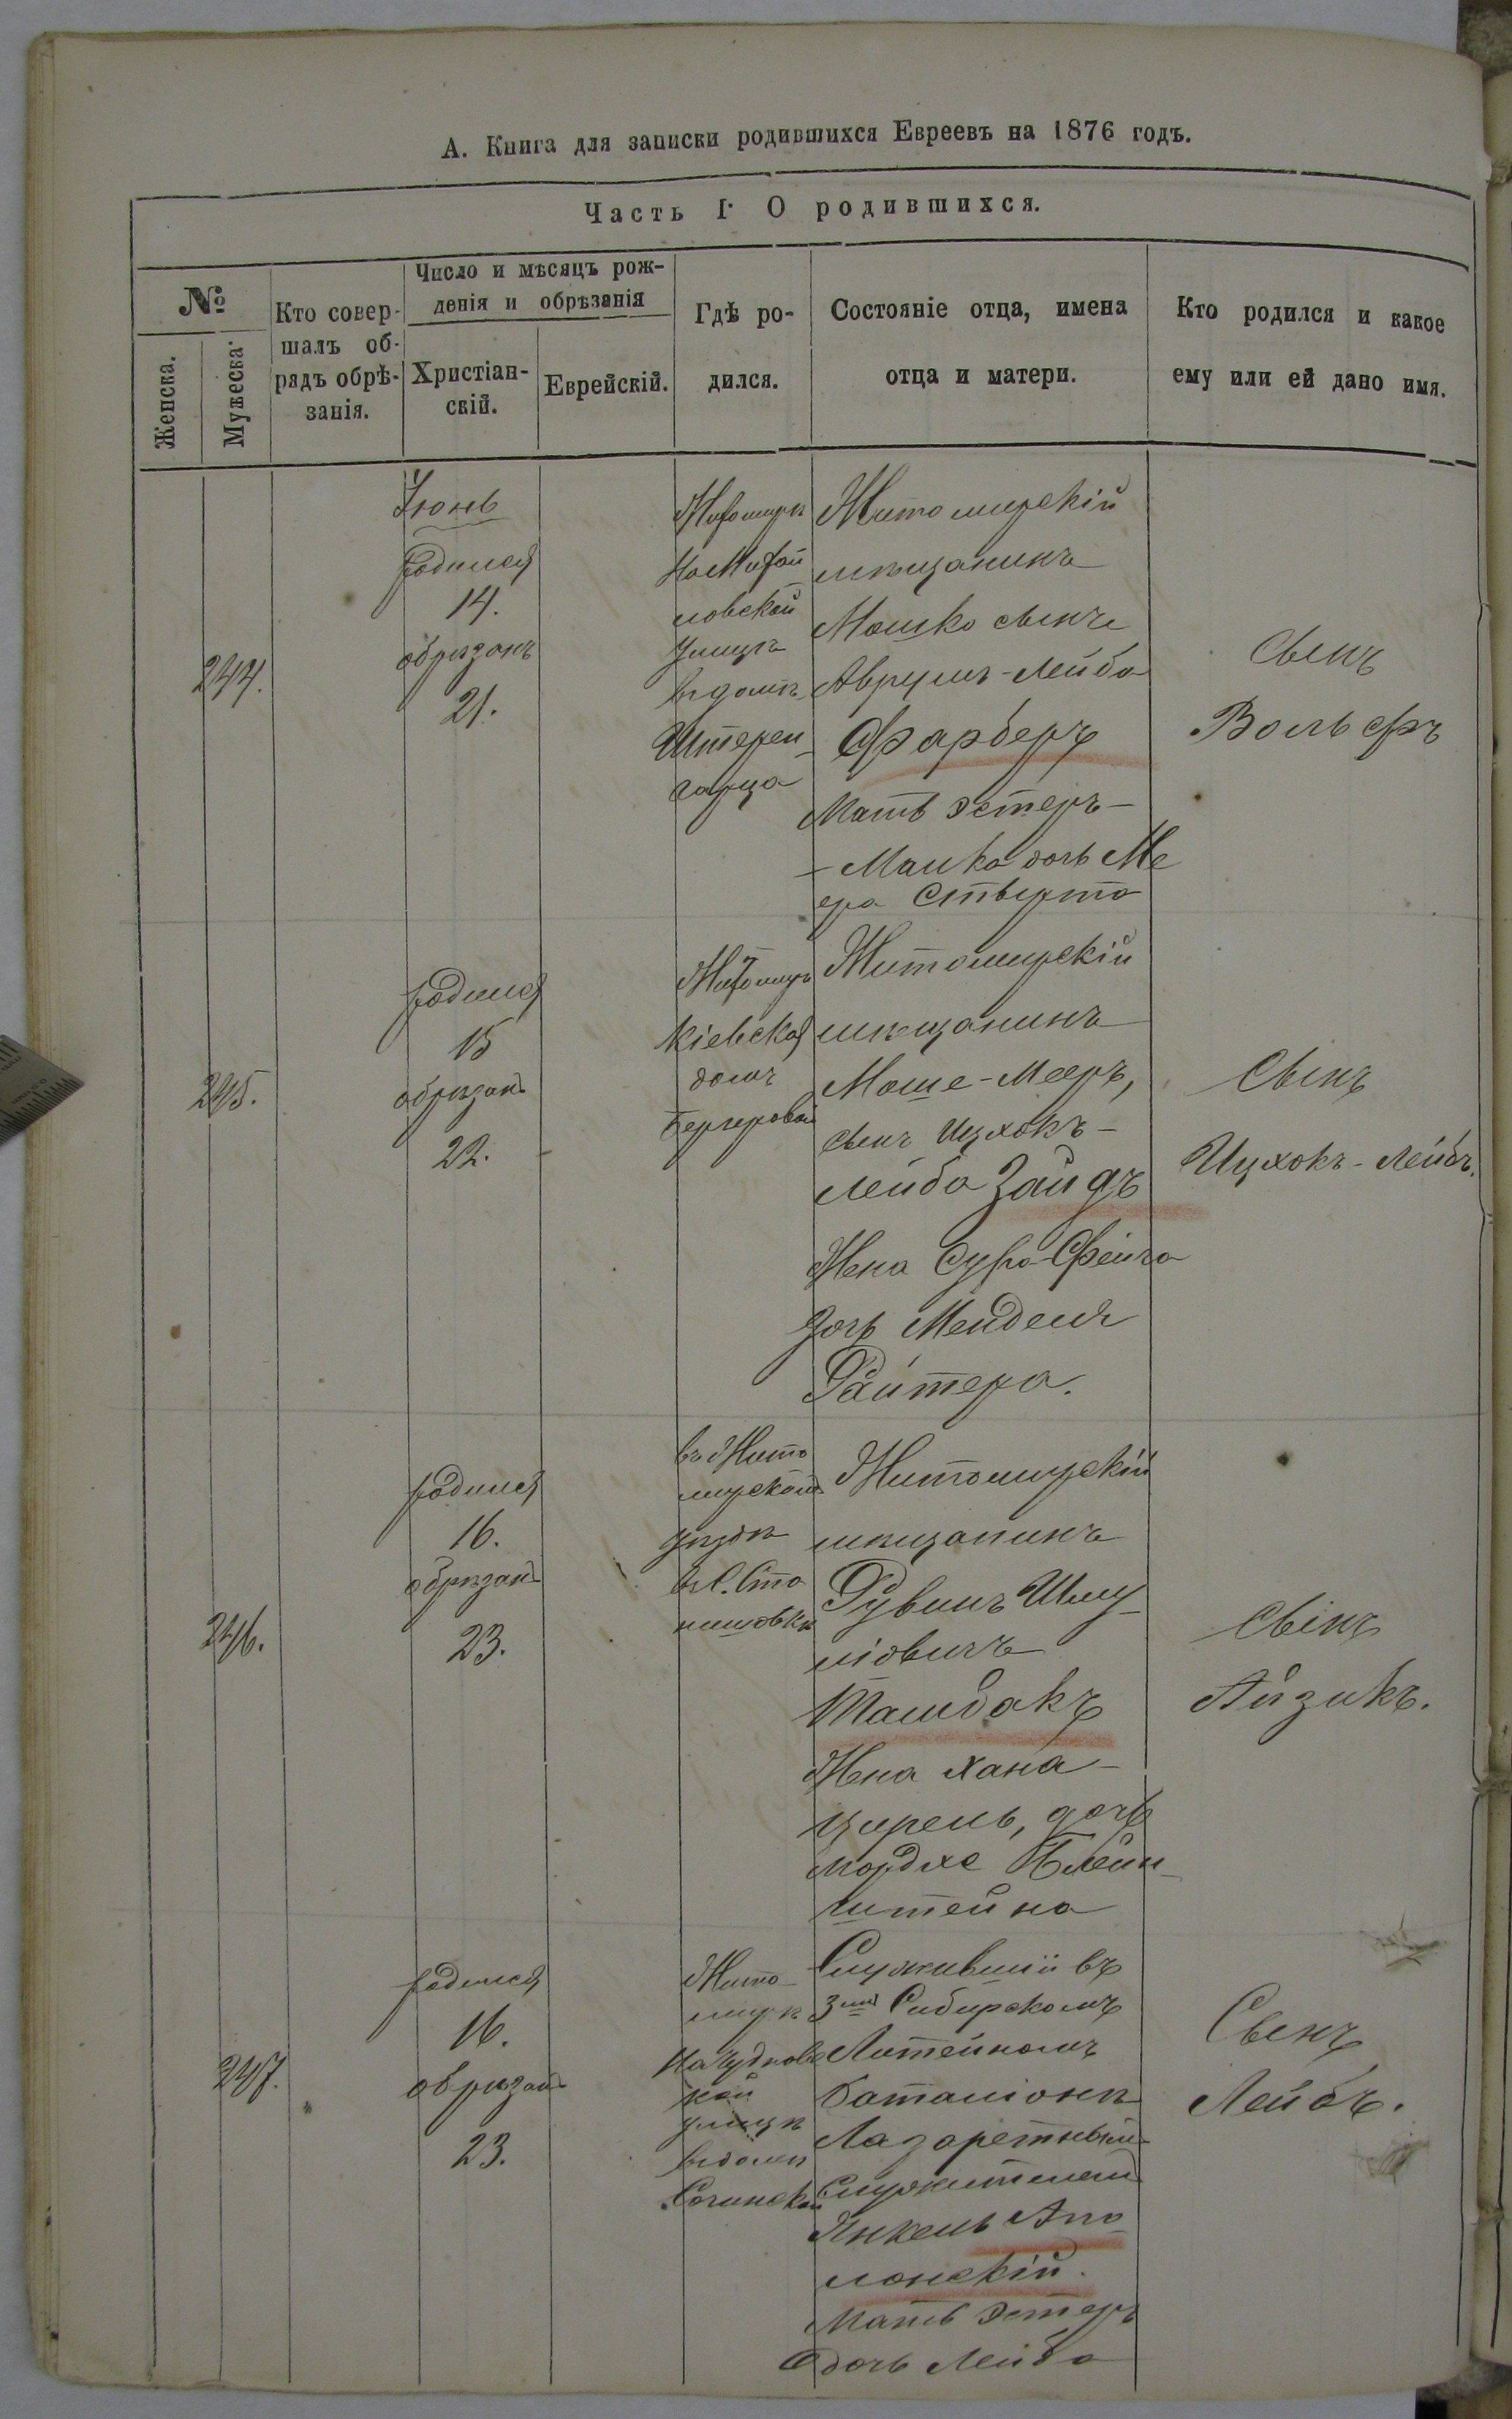 А. Книга для записки родившихся Евреевъ на 1876 годъ.
Часть I. О родившихся.
№
Женска.
Мужеска.
Кто совер-
шалъ об-
рядъ обрѣ-
занія.
Число и мѣсяцъ рож-
денія и обрѣзанія
Христіан-
скій.
Еврейскій.
Гдѣ ро-
дился.
Состояніе отца, имена
отца и матери.
Кто родился и какое
ему или ей дано имя.
244.
Іюнь
родился
14.
обрѣзанъ
21.
Житомиръ
на Михай
ловской
улицѣ
въ домѣ
Штерен-
гарца
Житомирскій
мѣщанинъ
Мошко сынъ
Аврумъ-Лейба
Фарберъ
Мать Эстеръ-
-Малка дочь Ме
ера
Сынъ
Вольфъ
245.
родился
15
обрѣзанъ
22.
Житомиръ
Кіевская
домъ
Бергеровой
Житомирскій
мѣщанинъ
Моше-Мееръ,
сынъ Ицхокъ-
Лейба Зайдъ
Жена Сура-Фейга
дочь Менделя
Райтера.
Сынъ
Ицхокъ-Лейбъ.
246.
родился
16.
обрѣзанъ
23.
въ Жито
мирскомъ
уѣздѣ
въ С. Ста
нишовкѣ
Житомирскій
мѣщанинъ
Рувинъ Шму-
ліовичъ
Талибакъ
Жена Хана-
Цирель, дочь
Мордхе Блейн-
штейна
Сынъ
Айзикъ.
247.
родился
16.
обрѣзанъ
23.
Жито-
мирѣ
на Чуднов
кой
улицѣ
въ домѣ
Служившій въ
3мъ Сибирскомъ
Литейномъ
баталіонѣ
Лазаретнымъ
Служителемъ
Янкель Апо-
лонскій.
Мать Эстеръ
дочь Лейба
Сынъ
Лейбъ.